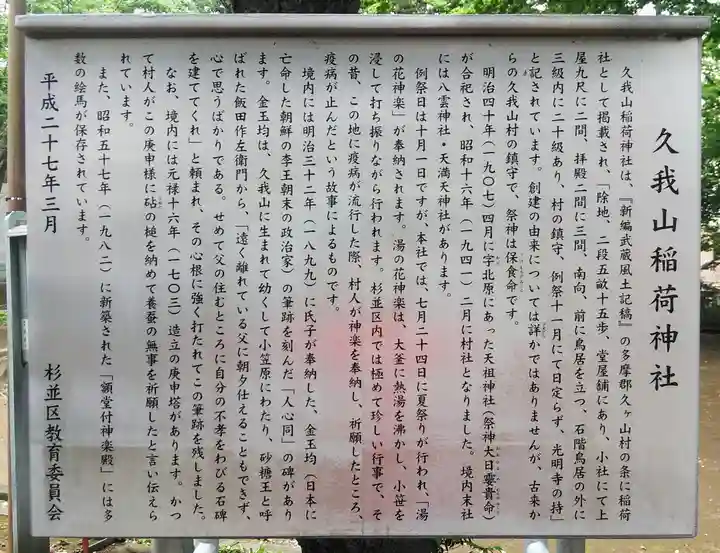 久我山稲荷神社
久我山稲荷神社は、『新編武蔵風土記稿』の多摩郡久ヶ山村の条に稲荷
社として掲載され、「除地、二段五畝十五歩、堂屋舗にあり、小社にて上
屋九尺に二間、拝殿二間に三間、南向、前に鳥居を立つ、石階鳥居の外に
三級内に二十級あり、村の鎮守、例祭十一月にて日定らず、光明寺の持」
と記されています。創建の由来については詳かではありませんが、古来か
らの久我山村の鎮守で、祭神は保食命です。
明治四十年（一九〇七）四月に字北原にあった天祖神社（祭神大日孁貴命）
が合祀され、昭和十六年（一九四一）二月に村社となりました。境内末社
には八雲神社・天満天神社があります。
例祭日は十月一日ですが、本社では、七月二十四日に夏祭りが行われ、「湯
の花神楽」が奉納されます。湯の花神楽は、大釜に熱湯を沸かし、小笹を
浸して打ち振りながら行われます。杉並区内では極めて珍しい行事で、そ
の昔、この地に疫病が流行した際、村人が神楽を奉納し、祈願したところ、
疫病が止んだという故事によるものです。
境内には明治三十二年（一八九九）に氏子が奉納した、金玉均（日本に
亡命した朝鮮の李王朝末の政治家）の筆跡を刻んだ「人心同」の碑があり
ます。金玉均は、久我山に生まれて幼くして小笠原にわたり、砂糖王と呼
ばれた飯田作左衛門から、「遠く離れている父に朝夕仕えることもできず、
心で思うばかりである。せめて父の住むところに自分の不孝をわびる石碑
を建ててくれ」と頼まれ、その心根に強く打たれてこの筆跡を残しました。
なお、境内には元禄十六年（一七〇三）造立の庚申塔があります。かつ
て村人がこの庚申様に砧の槌を納めて養蚕の無事を祈願したと言い伝えら
れています。
また、昭和五十七年（一九八二）に新築された「額堂付神楽殿」には多
数の絵馬が保存されています。
平成二十七年三月
杉並区教育委員会